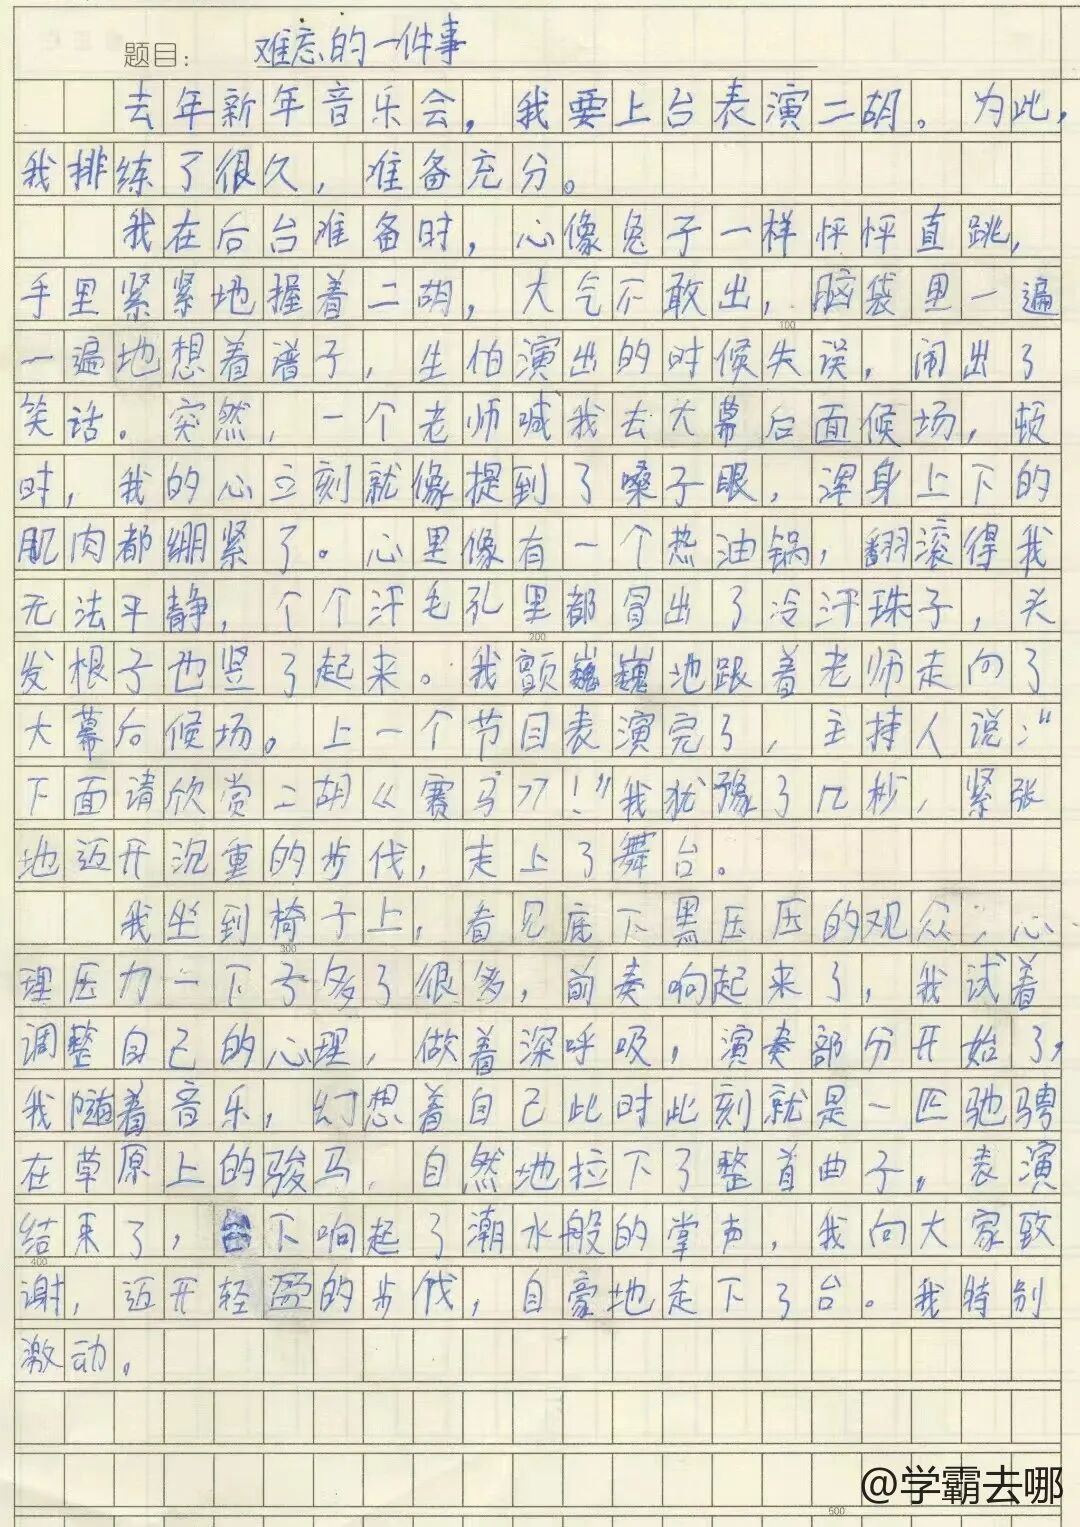 题目：难忘的一件事
去年新年音乐会，我要上台表演二胡。为此，
我排练了很久，准备充分。
我在后台准备时，心像兔子一样怦怦直跳，
手里紧紧地握着二胡，大气不敢出，脑袋里一遍
100
一遍地想着谱子，生怕演出的时候失误，闹出了
笑话。突然，一个老师喊我去大幕后面候场，顿
时，我的心立刻就像提到了嗓子眼，浑身上下的
肌肉都绷紧了。心里像有一个热油锅，翻滚得我
无法平静，个个汗毛孔里都冒出了冷汗珠子，头
200
发根子也竖了起来。我颤巍巍地跟着老师走向了
大幕后候场。上一个节目表演完了，主持人说：“
下面请欣赏二胡《赛马》！”我犹豫了几秒，紧张
地迈开沉重的步伐，走上了舞台。
我坐到椅子上，看见底下黑压压的观众，心
300
理压力一下子多了很多，前奏响起来了，我试着
调整自己的心理，做着深呼吸，演奏部分开始了，
我随着音乐，幻想着自己此时此刻就是一匹驰骋
在草原上的骏马，自然地拉下了整首曲子，表演
结束了，台下响起了潮水般的掌声，我向大家致
400
谢，迈开轻盈的步伐，自豪地走下了台。我特别
激动。
@学霸去哪
500